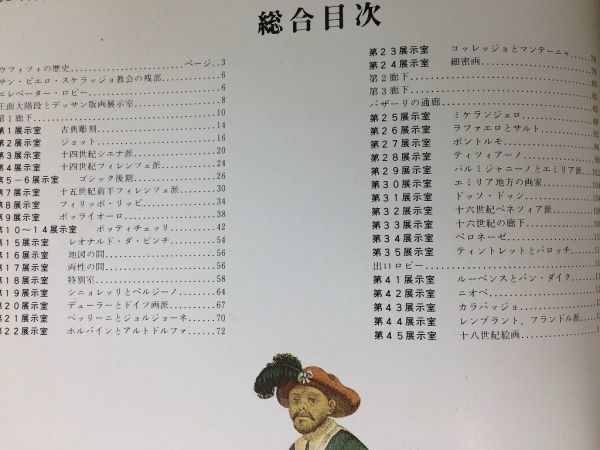 総合目次
ウフィツィの歴史……ページ..3
サン・ピエロ・スケラッジョ教会の残部……6
エレベーター・ロビー……6
正面大階段とデッサン版画展示室……8
第1廊下……10
第1展示室 古典彫刻……14
第2展示室 ジョット……16
第3展示室 十四世紀シエナ派……20
第4展示室 十四世紀フィレンツェ派……24
第5－6展示室 ゴシック後期……26
第7展示室 十五世紀前半フィレンツェ派……30
第8展示室 フィリッポ・リッピ……34
第9展示室 ポッライオーロ……38
第10〜14展示室 ボッティチェッリ……42
第15展示室 レオナルド・ダ・ビンチ……54
第16展示室 地図の間……56
第17展示室 両性の間……56
第18展示室 特別室……58
第19展示室 シニョレッリとペルジーノ……64
第20展示室 デューラーとドイツ画派……67
第21展示室 ベッリーニとジョルジョーネ……70
第22展示室 ホルバインとアルトドルファ……72
第23展示室 コッレッジョとマンテーニャ……76
第24展示室 細密画……78
第2廊下……80
第3廊下……82
バザーリの通廊……82
第25展示室 ミケランジェロ……88
第26展示室 ラファエロとサルト……90
第27展示室 ポントルモ……
第28展示室 ティツィアーノ……
第29展示室 パルミジャニーノとエミリア派……102
第30展示室 エミリア地方の画家……104
第31展示室 ドッソ・ドッシ……
第32展示室 十六世紀ベネツィア派……
第33展示室 十六世紀の廊下……
第34展示室 ベロネーゼ……
第35展示室 ティントレットとバロッチ……
出口ロビー……
第41展示室 ルーベンスとバン・ダイク……
第42展示室 ニオベ……
第43展示室 カラバッジョ……
第44展示室 レンブラント、フランドル派……
第45展示室 十八世紀絵画……